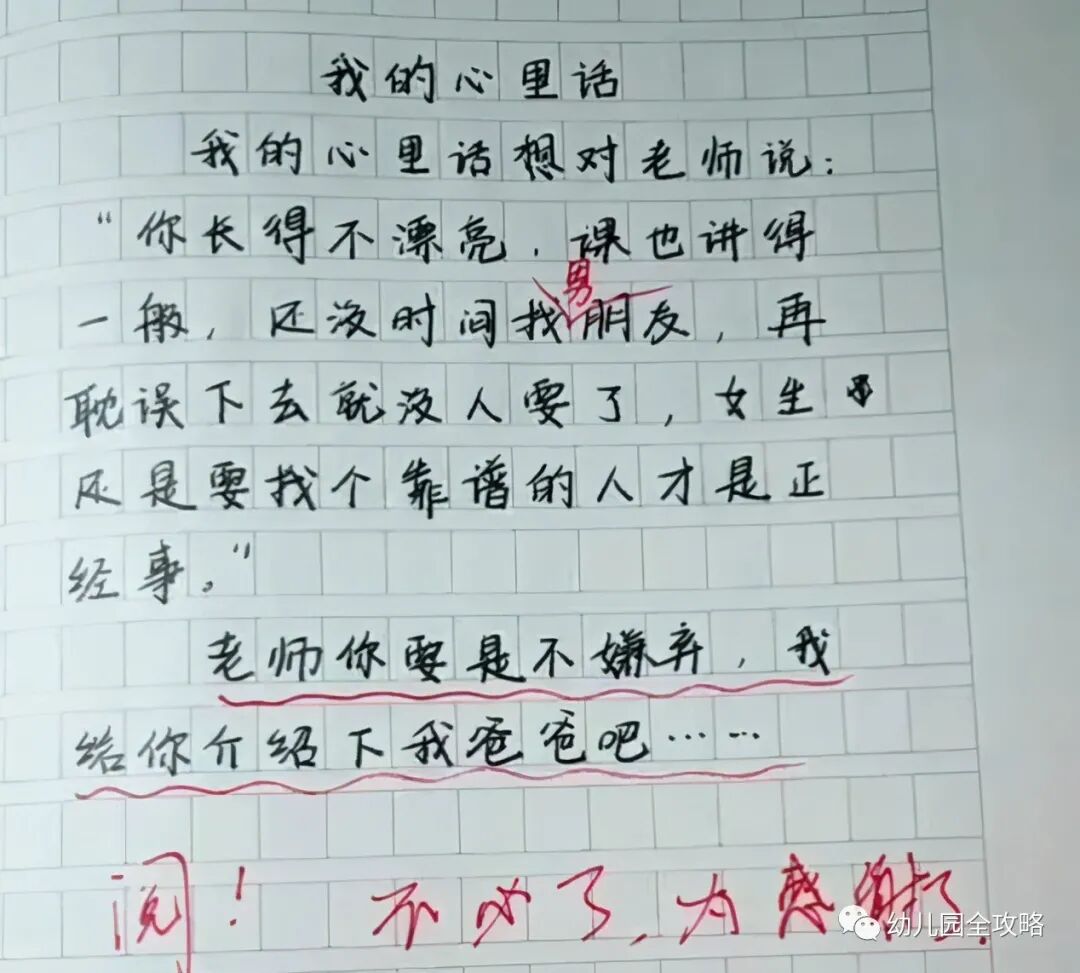 我的心里话
我的心里话想对老师说：
“你长得不漂亮，课也讲得
男
一般，还没时间找朋友，再
耽误下去就没人要了，女生
还是要找个靠谱的人才是正
经事。”
老师你要是不嫌弃，我
给你介绍下我爸爸吧……
阅！不必了，为感谢
幼儿园全攻略